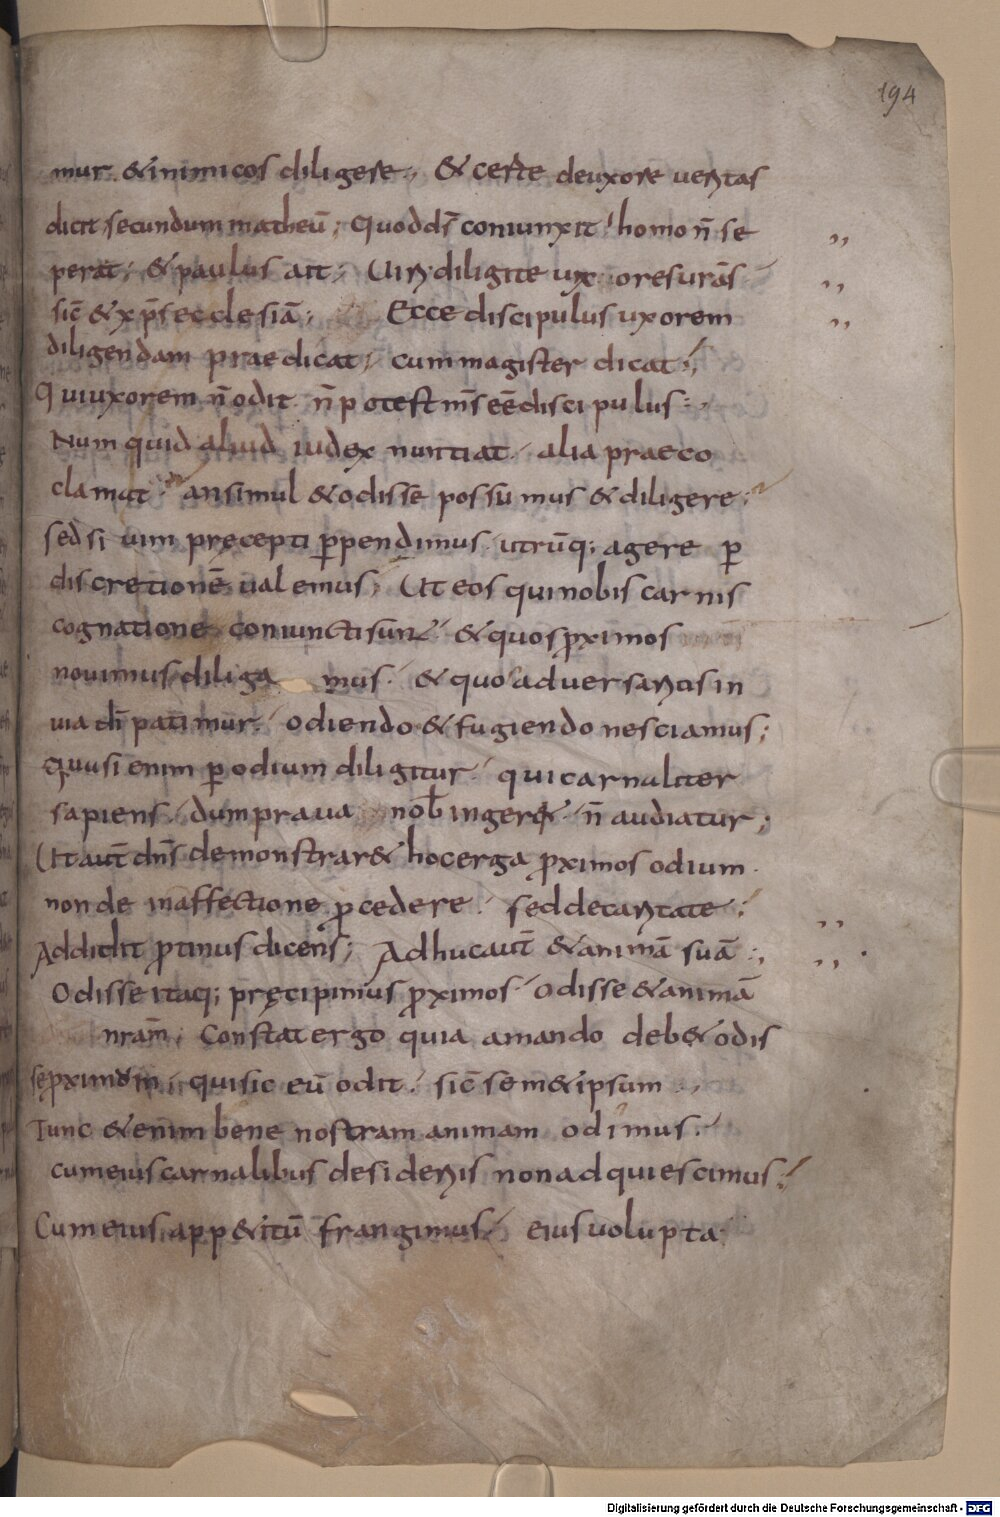 194
mur. & inimicos diligere; & certe de uxore ueritas
dicit secundum matheū; Quod ds̄ coniunxit homo n̄ se
perat; & paulus ait; Uiri diligite uxores urās
sic̄ & xp̄s ecclesiā; Ecce discipulus uxorem
diligendam praedicat, cum magister dicat;
Qui uxorem n̄ odit n̄ potest m̄s eē discipulus;
Numquid aliud iudex nuntiat, alia praeco
clamat. an simul & odisse possumus & diligere;
sed si uim pręcepti p̄pendimus, utrūq; agere p̄
discretionē ualemus; Ut eos qui nobis carnis
cognatione coniuncti sunt, & quos p̄ximos
nouimus diligamus. & quos aduersantes in
uia dī patimur, odiendo & fugiendo nesciamus;
Quasi enim p̄ odium diligitur, qui carnaliter
sapiens, dum praua nob̄ inger&, n̄ audiatur;
Ut aut̄ dn̄s demonstrar& hoc erga p̄ximos odium
non de inaffectione p̄cedere. sed de caritate;
Addidit p̄tinus dicens; Adhuc aut̄ & animā suā;
Odisse itaq; pręcipimus p̄ximos odisse & animā
nrām; Constat ergo quia amando deb& odis
se p̄ximum, qui sic eū odit, sic̄ sem&ipsum.
Tunc &enim bene nostram animam odimus,
cum eius carnalibus desideriis non adquiescimus;
Cum eius app&itū frangimus, eius uolupta
Digitalisierung gefördert durch die Deutsche Forschungsgemeinschaft - DFG